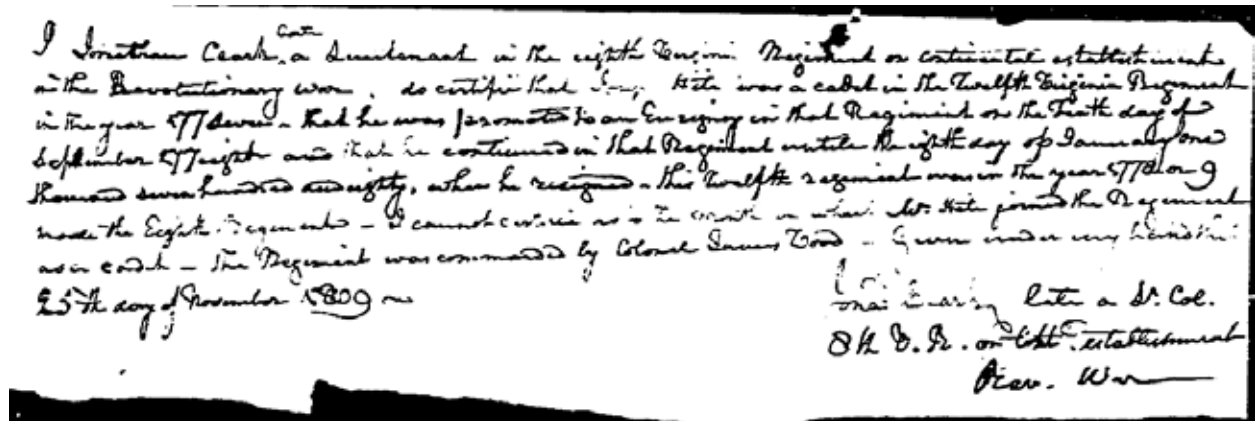 I Jonathan Clark, late a Lieutenant in the eighth Virginia Regiment on continental establishment
in the Revolutionary war, do certifie that Hite was a cadet in the Twelfth Virginia Regiment
in the year 1777 seven - that he was promoted to an Ensigncy in that Regiment on the Tenth day of
September 1777 eight and that he continued in that Regiment untill the eighth day of January one
thousand seven hundred and eighty, when he resigned - this Twelfth regiment was in the year 1778 or 9
made the Eighth Regiment - I cannot as to the month in which Mr. Hite joined the Regiment
as a cadet - The Regiment was commanded by Colonel James Wood - Given under my hand this
25th day of November 1809
Jona Clark late a Lt. Col.
8th V. R. on Contl. establishment
Rev. War